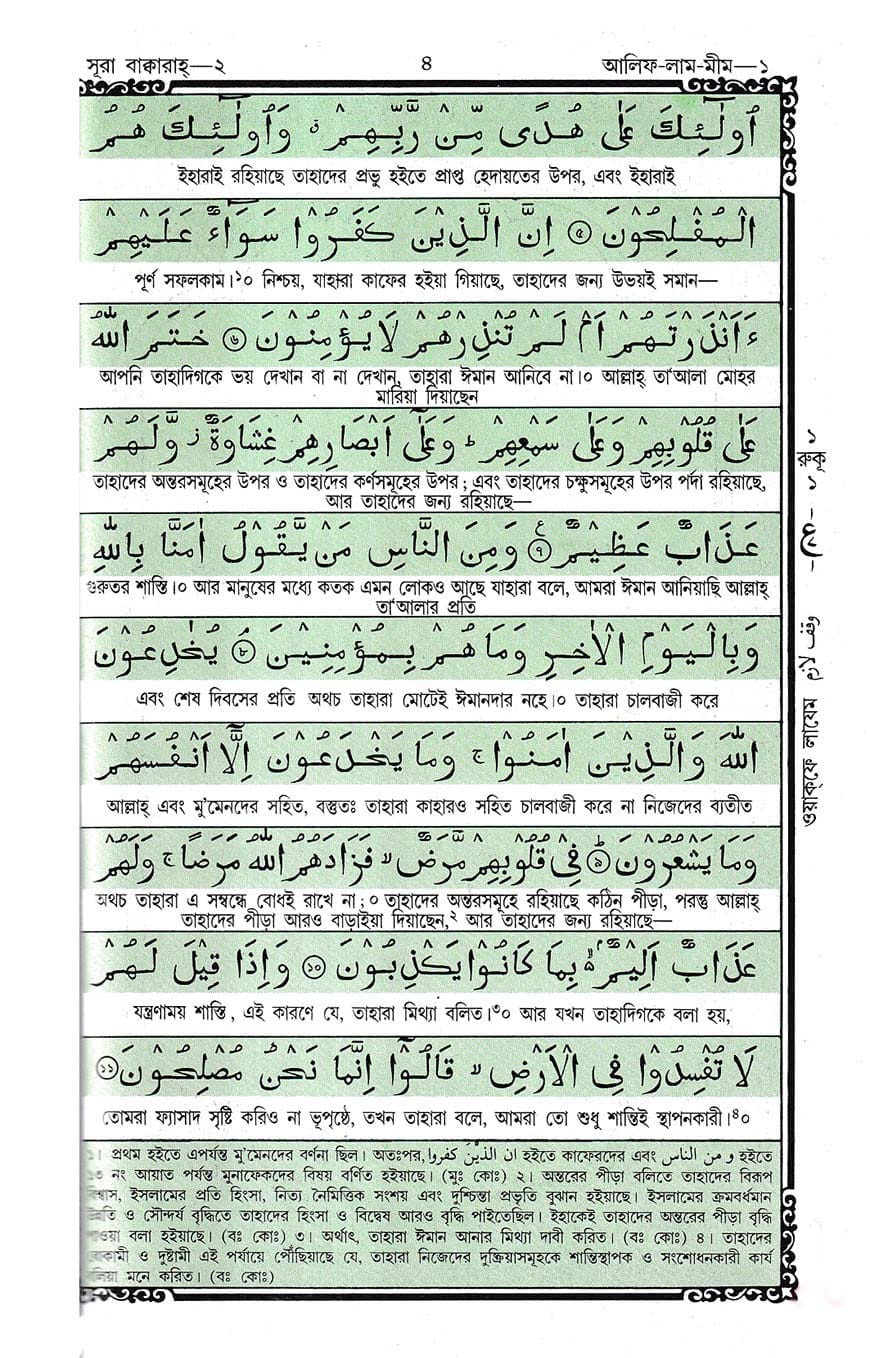 সূরা বাক্বারাহ্—২ ৪ আলিফ-লাম-মীম—১
اُولٰٓئِكَ عَلٰى هُدًى مِّنْ رَّبِّهِمْ ۙ وَاُولٰٓئِكَ هُمُ
ইহারাই রহিয়াছে তাহাদের প্রভু হইতে প্রাপ্ত হেদায়তের উপর, এবং ইহারাই
الْمُفْلِحُوْنَ ۝٥ اِنَّ الَّذِيْنَ كَفَرُوْا سَوَآءٌ عَلَيْهِمْ
পূর্ণ সফলকাম।১০ নিশ্চয়, যাহারা কাফের হইয়া গিয়াছে, তাহাদের জন্য উভয়ই সমান—
ءَاَنْذَرْتَهُمْ اَمْ لَمْ تُنْذِرْهُمْ لَا يُؤْمِنُوْنَ ۝٦ خَتَمَ اللّٰهُ
আপনি তাহাদিগকে ভয় দেখান বা না দেখান, তাহারা ঈমান আনিবে না।০ আল্লাহ্ তা‘আলা মোহর
মারিয়া দিয়াছেন
عَلٰى قُلُوْبِهِمْ وَعَلٰى سَمْعِهِمْ ؕ وَعَلٰٓى اَبْصَارِهِمْ غِشَاوَةٌ ؗ وَّلَهُمْ
তাহাদের অন্তরসমূহের উপর ও তাহাদের কর্ণসমূহের উপর ; এবং তাহাদের চক্ষুসমূহের উপর পর্দা রহিয়াছে,
আর তাহাদের জন্য রহিয়াছে—
عَذَابٌ عَظِيْمٌ ۝٧ وَمِنَ النَّاسِ مَنْ يَّقُوْلُ اٰمَنَّا بِاللّٰهِ
গুরুতর শাস্তি।০ আর মানুষের মধ্যে কতক এমন লোকও আছে যাহারা বলে, আমরা ঈমান আনিয়াছি আল্লাহ্
তা‘আলার প্রতি
وَبِالْيَوْمِ الْاٰخِرِ وَمَا هُمْ بِمُؤْمِنِيْنَ ۝٨ يُخٰدِعُوْنَ
এবং শেষ দিবসের প্রতি অথচ তাহারা মোটেই ঈমানদার নহে।০ তাহারা চালবাজী করে
اللّٰهَ وَالَّذِيْنَ اٰمَنُوْا ۚ وَمَا يَخْدَعُوْنَ اِلَّآ اَنْفُسَهُمْ
আল্লাহ্ এবং মু’মেনদের সহিত, বস্তুতঃ তাহারা কাহারও সহিত চালবাজী করে না নিজেদের ব্যতীত
وَمَا يَشْعُرُوْنَ ۝٩ فِيْ قُلُوْبِهِمْ مَّرَضٌ ۙ فَزَادَهُمُ اللّٰهُ مَرَضًا ۚ وَلَهُمْ
অথচ তাহারা এ সম্বন্ধে বোধই রাখে না ;০ তাহাদের অন্তরসমূহে রহিয়াছে কঠিন পীড়া, পরন্তু আল্লাহ্
তাহাদের পীড়া আরও বাড়াইয়া দিয়াছেন,২ আর তাহাদের জন্য রহিয়াছে—
عَذَابٌ اَلِيْمٌۢ ۙ بِمَا كَانُوْا يَكْذِبُوْنَ ۝١٠ وَاِذَا قِيْلَ لَهُمْ
যন্ত্রণাময় শাস্তি, এই কারণে যে, তাহারা মিথ্যা বলিত।৩০ আর যখন তাহাদিগকে বলা হয়,
لَا تُفْسِدُوْا فِي الْاَرْضِ ۙ قَالُوْٓا اِنَّمَا نَحْنُ مُصْلِحُوْنَ ۝١١
তোমরা ফ্যাসাদ সৃষ্টি করিও না ভূপৃষ্ঠে, তখন তাহারা বলে, আমরা তো শুধু শান্তিই স্থাপনকারী।৪০
১। প্রথম হইতে এপর্যন্ত মু’মেনদের বর্ণনা ছিল। অতঃপর, ان الذين كفروا হইতে কাফেরদের এবং و من الناس হইতে
নং আয়াত পর্যন্ত মুনাফেকদের বিষয় বর্ণিত হইয়াছে। (মুঃ কোঃ) ২। অন্তরের পীড়া বলিতে তাহাদের বিরূপ
ইসলামের প্রতি হিংসা, নিত্য নৈমিত্তিক সংশয় এবং দুশ্চিন্তা প্রভৃতি বুঝান হইয়াছে। ইসলামের ক্রমবর্ধমান
ও সৌন্দর্য বৃদ্ধিতে তাহাদের হিংসা ও বিদ্বেষ আরও বৃদ্ধি পাইতেছিল। ইহাকেই তাহাদের অন্তরের পীড়া বৃদ্ধি
বলা হইয়াছে। (বঃ কোঃ) ৩। অর্থাৎ, তাহারা ঈমান আনার মিথ্যা দাবী করিত। (বঃ কোঃ) ৪। তাহাদের
ও দুষ্টামী এই পর্যায়ে পৌঁছিয়াছে যে, তাহারা নিজেদের দুষ্ক্রিয়াসমূহকে শান্তিস্থাপক ও সংশোধনকারী কার্য
মনে করিত। (বঃ কোঃ)
১ রুকূ ১
ع
ওয়াক্ফে লাযেম وقف لازم